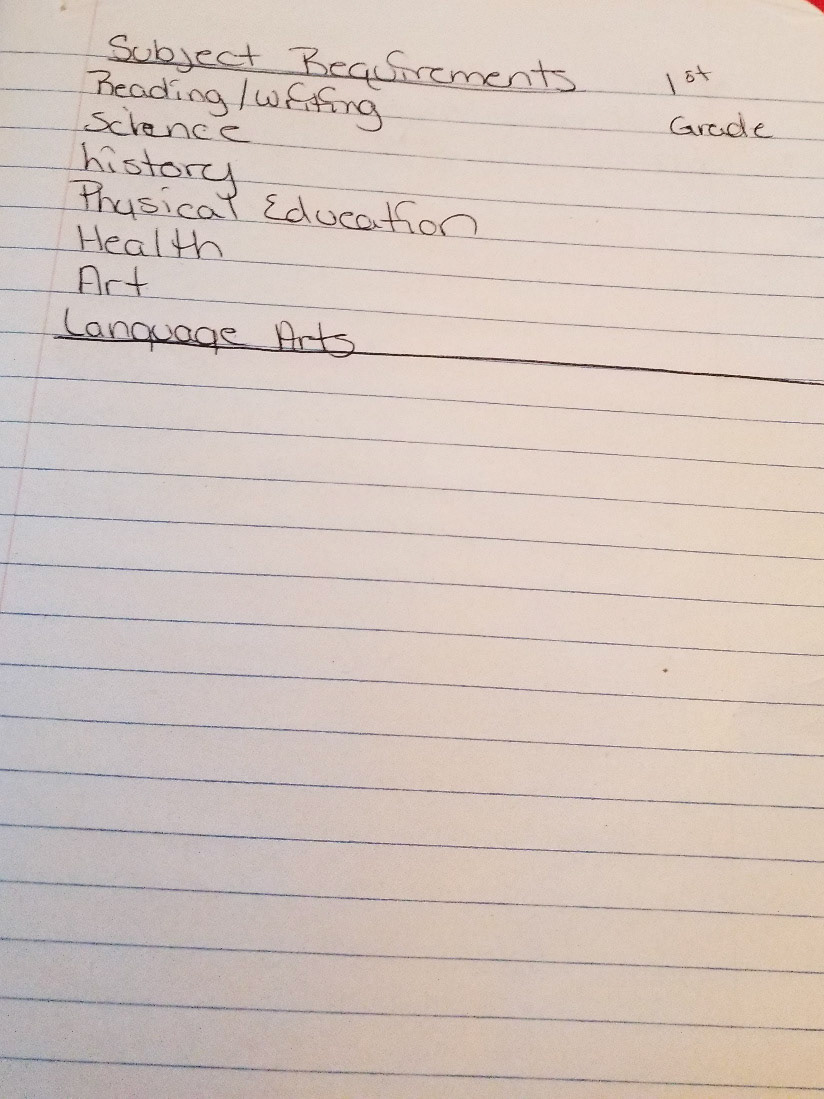 Subject Requirements 1st
Reading/writing Grade
Science
history
Physical Education
Health
Art
Language Arts